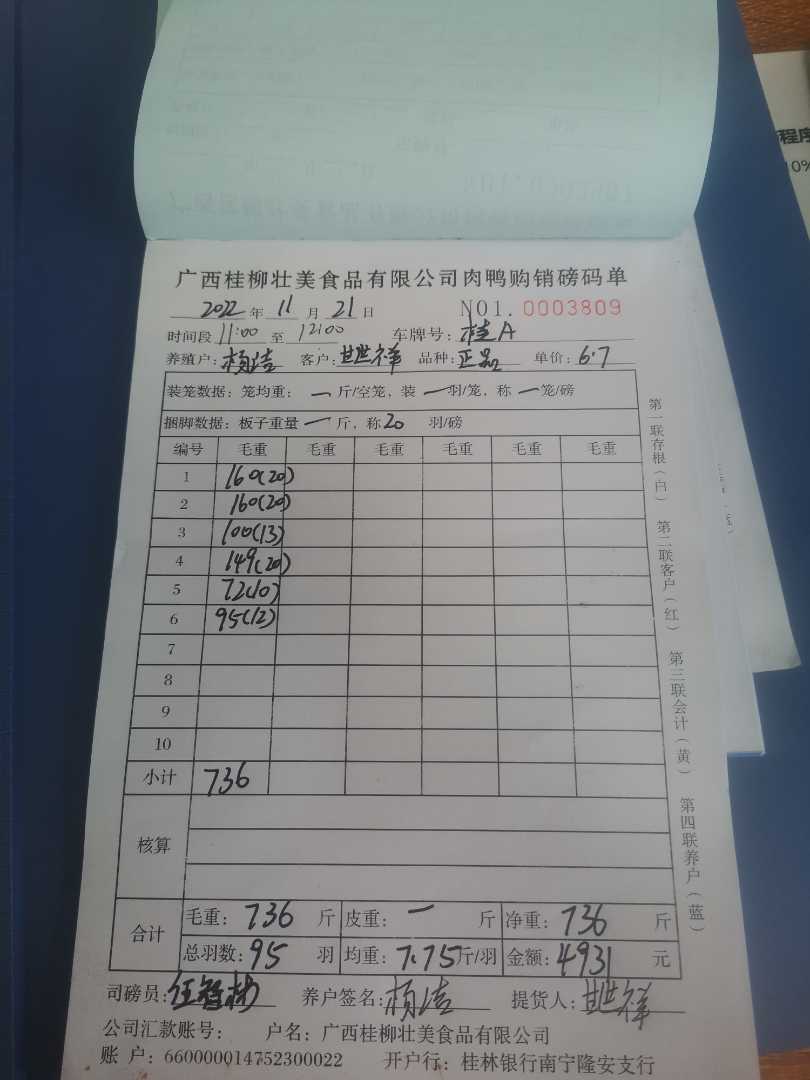 程序
10%
广西桂柳壮美食品有限公司肉鸭购销磅码单
2022年11月21日 NO1.0003809
时间段11:00至12:00 车牌号:桂A
养殖户:杨洁 客户:甘世祥 品种:正品 单价:6.7
装笼数据:笼均重:一斤/空笼,装一羽/笼,称一笼/磅
捆脚数据:板子重量一斤,称20羽/磅
编号 毛重 毛重 毛重 毛重 毛重 毛重
1 160(20)
2 160(20)
3 100(13)
4 149(20)
5 72(10)
6 95(12)
7
8
9
10
小计 736
核算
合计 毛重:736斤 皮重:一斤 净重:736斤
总羽数:95羽 均重:7.75斤/羽 金额:4931元
司磅员: 养户签名:杨洁 提货人:甘世祥
公司汇款账号: 户名:广西桂柳壮美食品有限公司
账 户:660000014752300022 开户行:桂林银行南宁隆安支行
第一联存根(白) 第二联客户(红) 第三联会计(黄) 第四联养户(蓝)